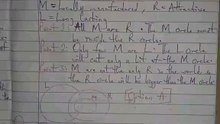 M = Locally manufactured, R = Attractive
L = Long lasting
Part 1: All M are R. The M circle must
be inside the R circle.
Part 2: Only few M are L. The L circle
will cut only a bit of the M circle.
M are not the only R in the world, so
the R circle will be bigger than the M circle.
M
R
Option A